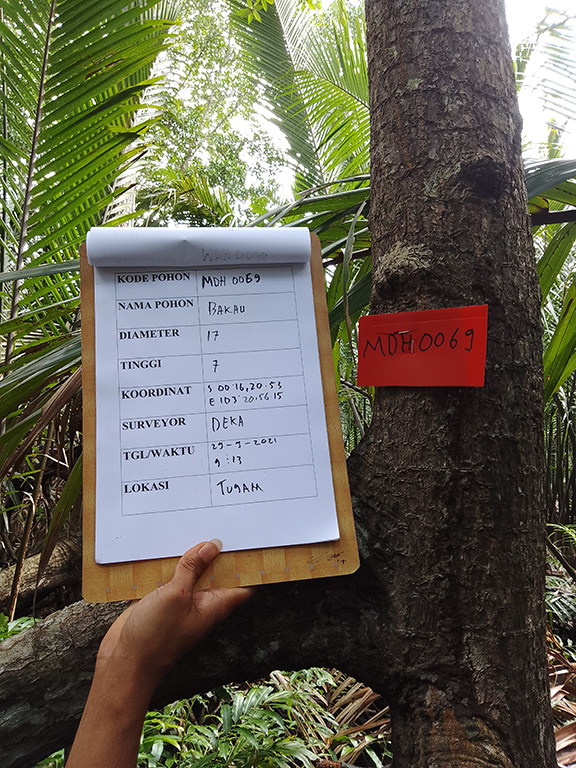 KODE POHON MDH 0069
NAMA POHON BAKAU
DIAMETER 17
TINGGI 7
KOORDINAT S 00.16,20.53
E 103°20.56.15
SURVEYOR DEKA
TGL/WAKTU 29-9-2021
9:13
LOKASI TUGAM
MDH0069